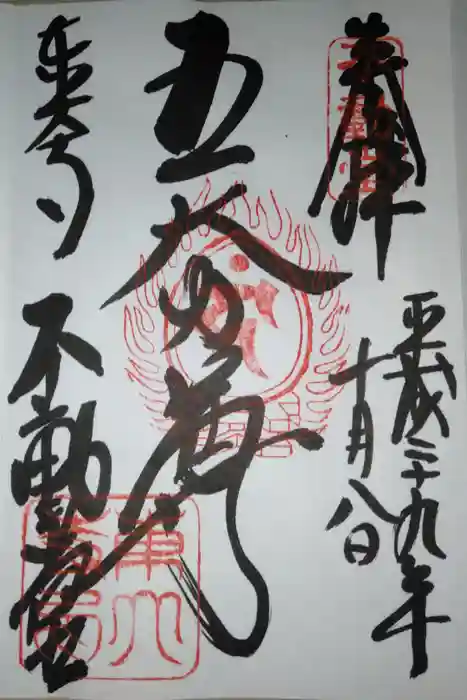 奉拝
平成二十九年
十月八日
五大尊
東大寺
不動堂